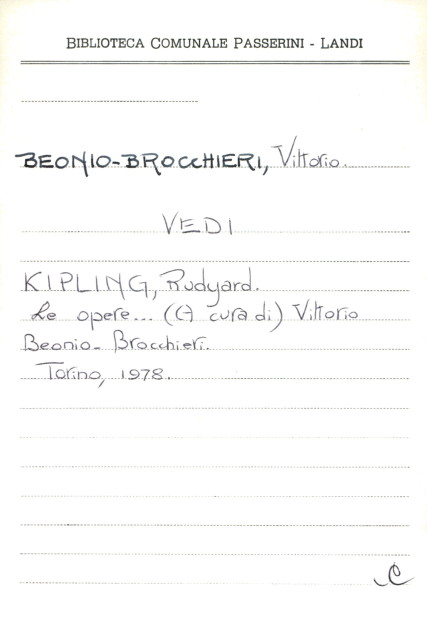 BIBLIOTECA COMUNALE PASSERINI - LANDI
BEONIO-BROCCHIERI, Vittorio.
VEDI
KIPLING, Rudyard.
Le opere... (A cura di) Vittorio
Beonio-Brocchieri.
Torino, 1978.
C